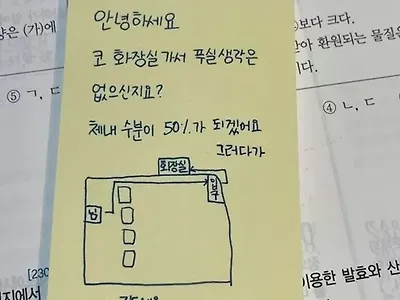 안녕하세요
코 화장실 가서 푹실생각은
없으신지요?
체내 수분이 50%가 되겠어요
그러다가
화장실
입구
남
양은 (가)에
⑤ ㄱ, ㄷ
보다 크다.
받아 환원되는 물질은
이다.
④ ㄴ, ㄷ
[230
지에서
이용한 발효와 산